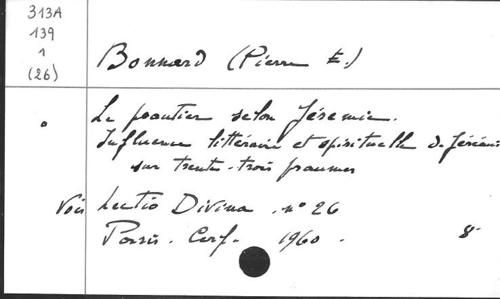 313A
139
1
(26)
Bonnard (Pierre E.)
Le psautier selon Jérémie.
Influence littéraire et spirituelle de Jérémie
sur trente-trois psaumes
Voir Lectio Divina. n° 26
Paris. Cerf. 1960. 8°